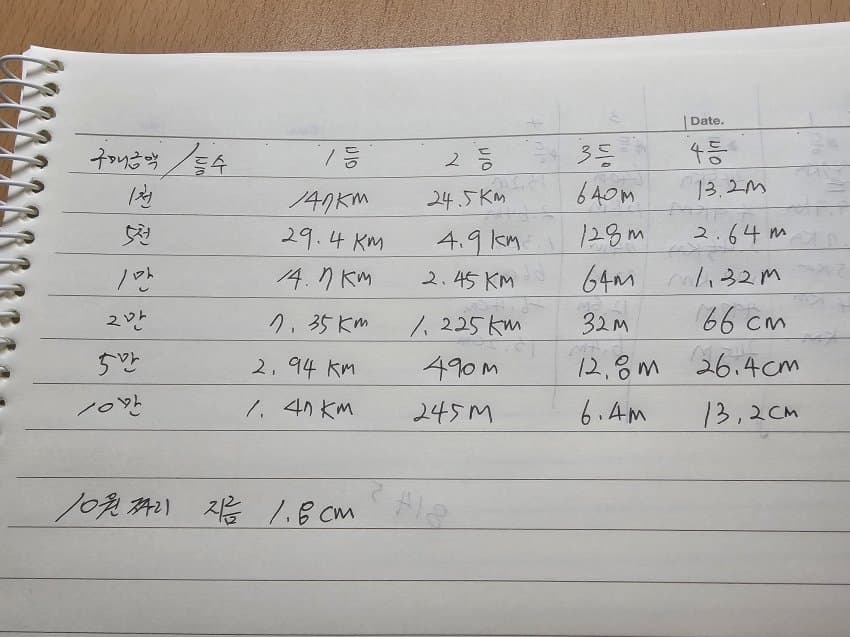 Date.
구매금액/등수 1등 2등 3등 4등
1천 147KM 24.5KM 640m 13.2M
5천 29.4KM 4.9KM 128m 2.64M
1만 14.7KM 2.45KM 64M 1.32M
2만 7.35KM 1.225KM 32M 66cm
5만 2.94KM 490M 12.8M 26.4cm
10만 1.47KM 245M 6.4M 13.2cm
10원짜리 지름 1.8cm